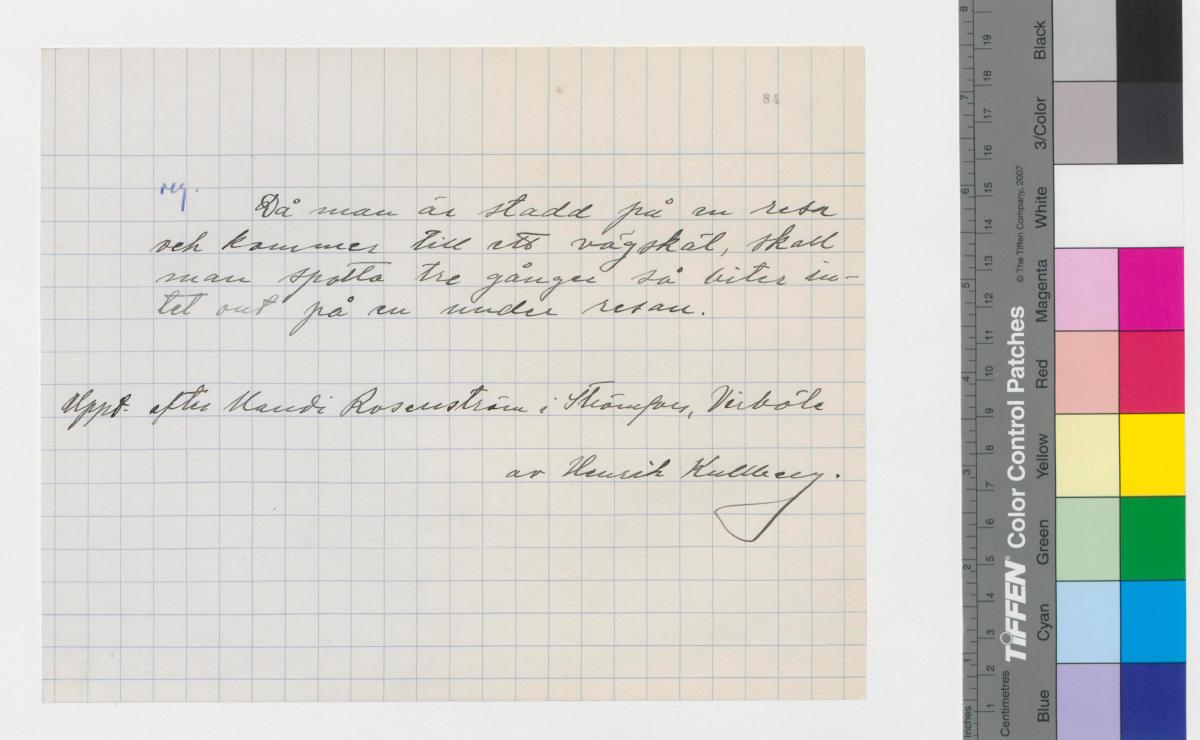 84
reg.
Då man är stadd på en resa
och kommer till ett vägskäl, skall
man spotta tre gånger så biter in-
tet ont på en under resan.
Uppt. efter Mandi Rosenström i Strömfors, Virböle
av Henrik Kullberg.
8 7 6 5 4 3 2 1 Inches
19 18 17 16 15 14 13 12 11 10 9 8 7 6 5 4 3 2 1 Centimetres
TIFFEN® Color Control Patches
© The Tiffen Company, 2007
Black
3/Color
White
Magenta
Red
Yellow
Green
Cyan
Blue